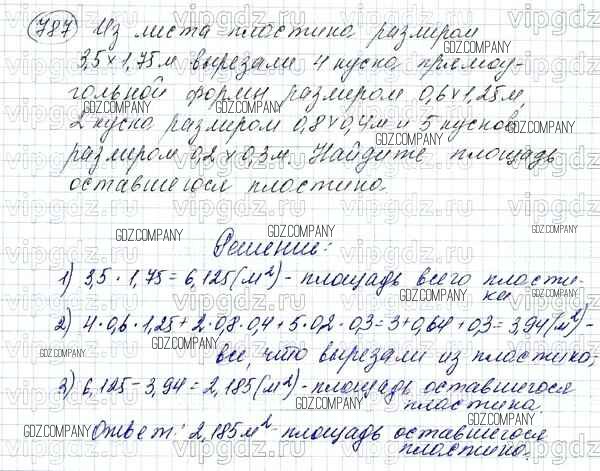 787 Из листа пластика размером
3,5 × 1,75 м вырезали 4 куска прямоу-
гольной формы размером 0,6 × 1,25 м,
2 куска размером 0,8 × 0,4 м и 5 кусков
размером 0,2 × 0,3 м. Найдите площадь
оставшегося пластика.
Решение:
1) 3,5 · 1,75 = 6,125 (м²) - площадь всего пласти-
ка
2) 4·0,6·1,25 + 2·0,8·0,4 + 5·0,2·0,3 = 3 + 0,64 + 0,3 = 3,94 (м²) -
все, что вырезали из пластика;
3) 6,125 - 3,94 = 2,185 (м²) - площадь оставшегося
пластика.
Ответ: 2,185 м² - площадь оставшегося
пластика.
GDZ.COMPANY
vipgdz.ru